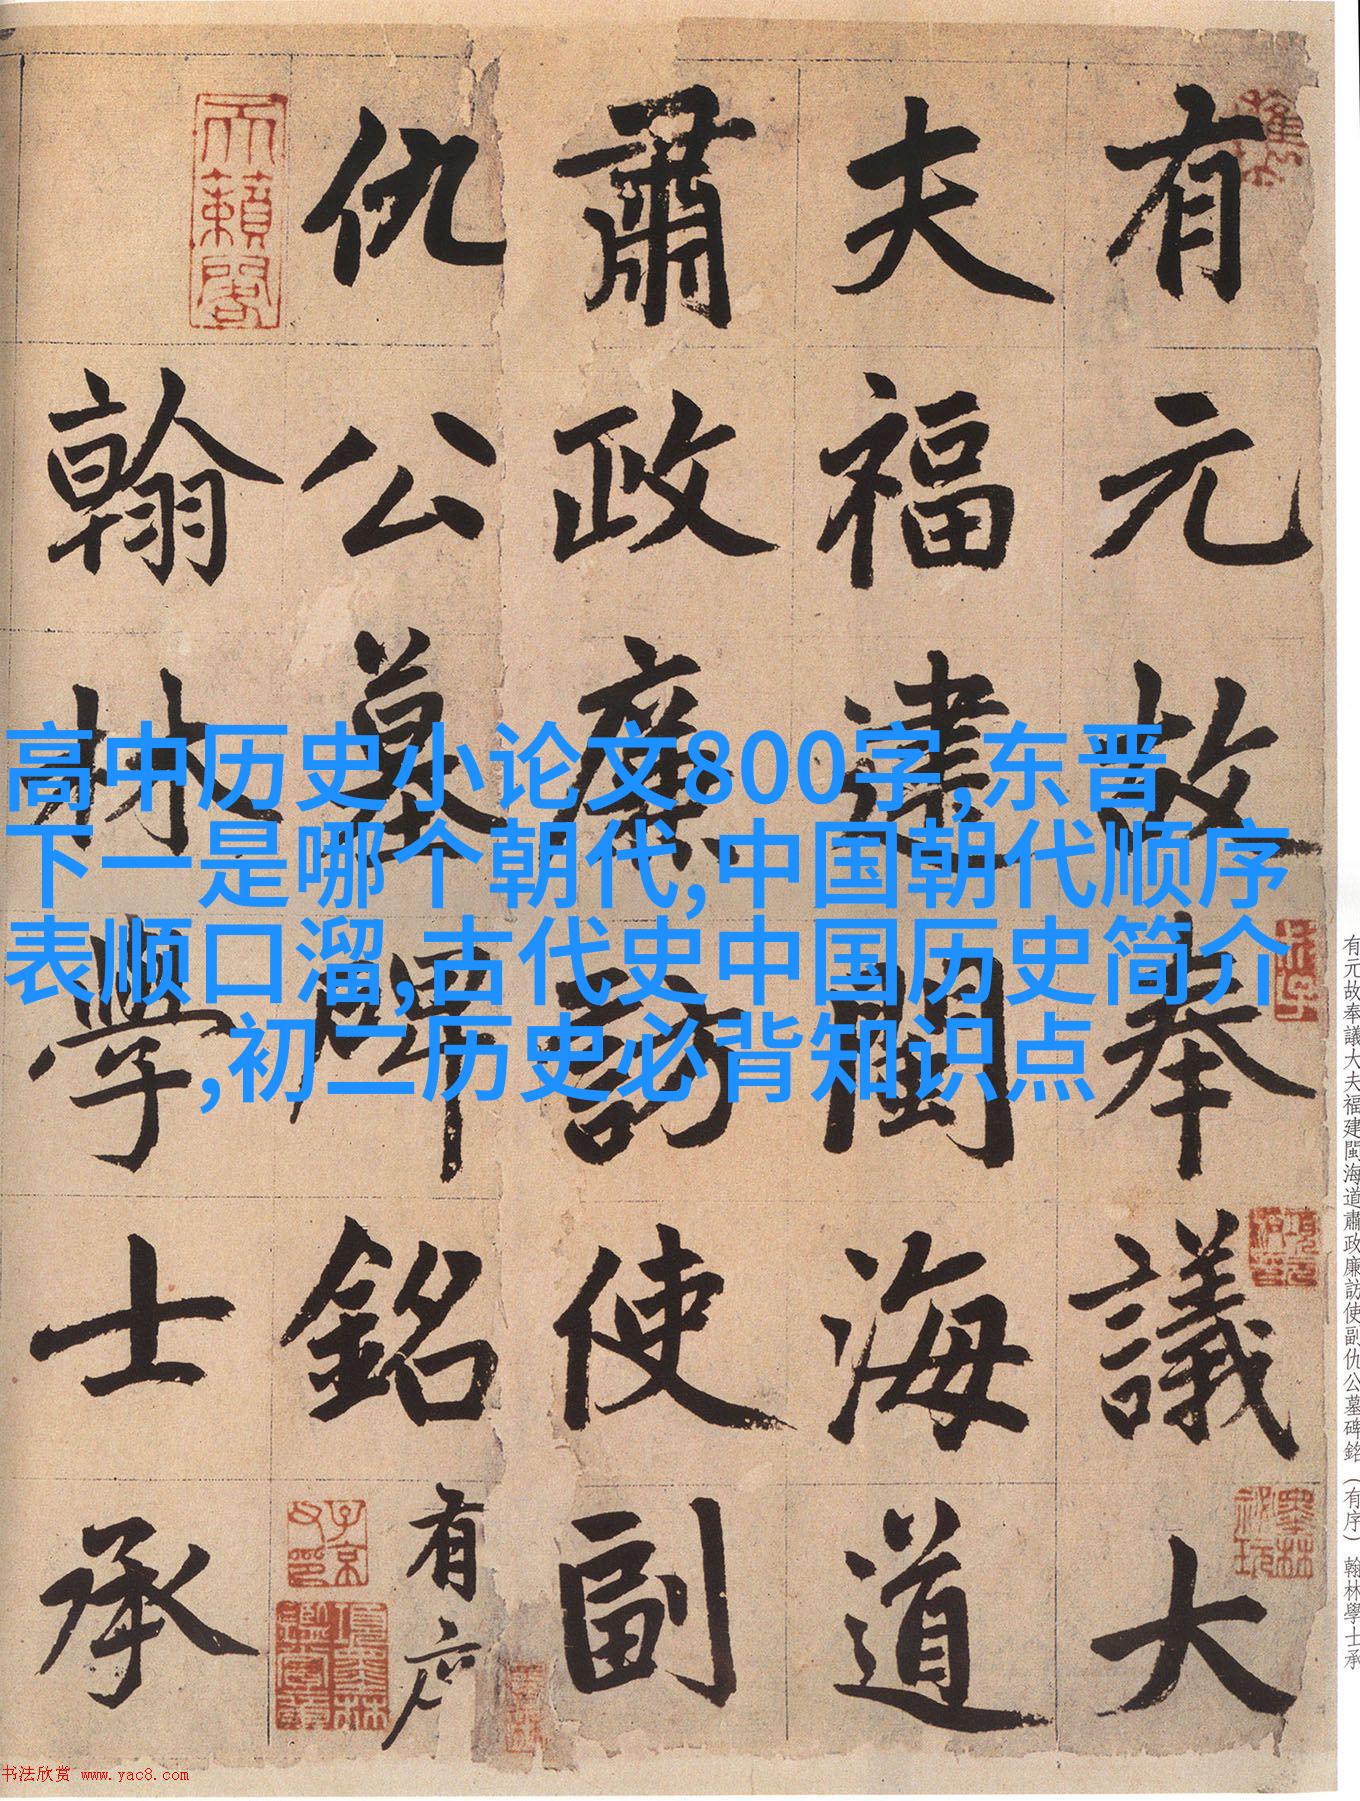 有元故奉議大
夫福建閩海道
肅政廉訪使副
仇公墓碑銘有序
翰林學士承
天籟閣
子京父印
項墨林鑑賞章
墨林秘玩
高中历史小论文800字,东晋
下一是哪个朝代,中国朝代顺序
表顺口溜,古代史中国历史简介
,初二历史必背知识点
有元故奉議大夫福建閩海道肅政廉訪使副仇公墓碑銘（有序） 翰林學士承
书法欣赏 www.yac8.com